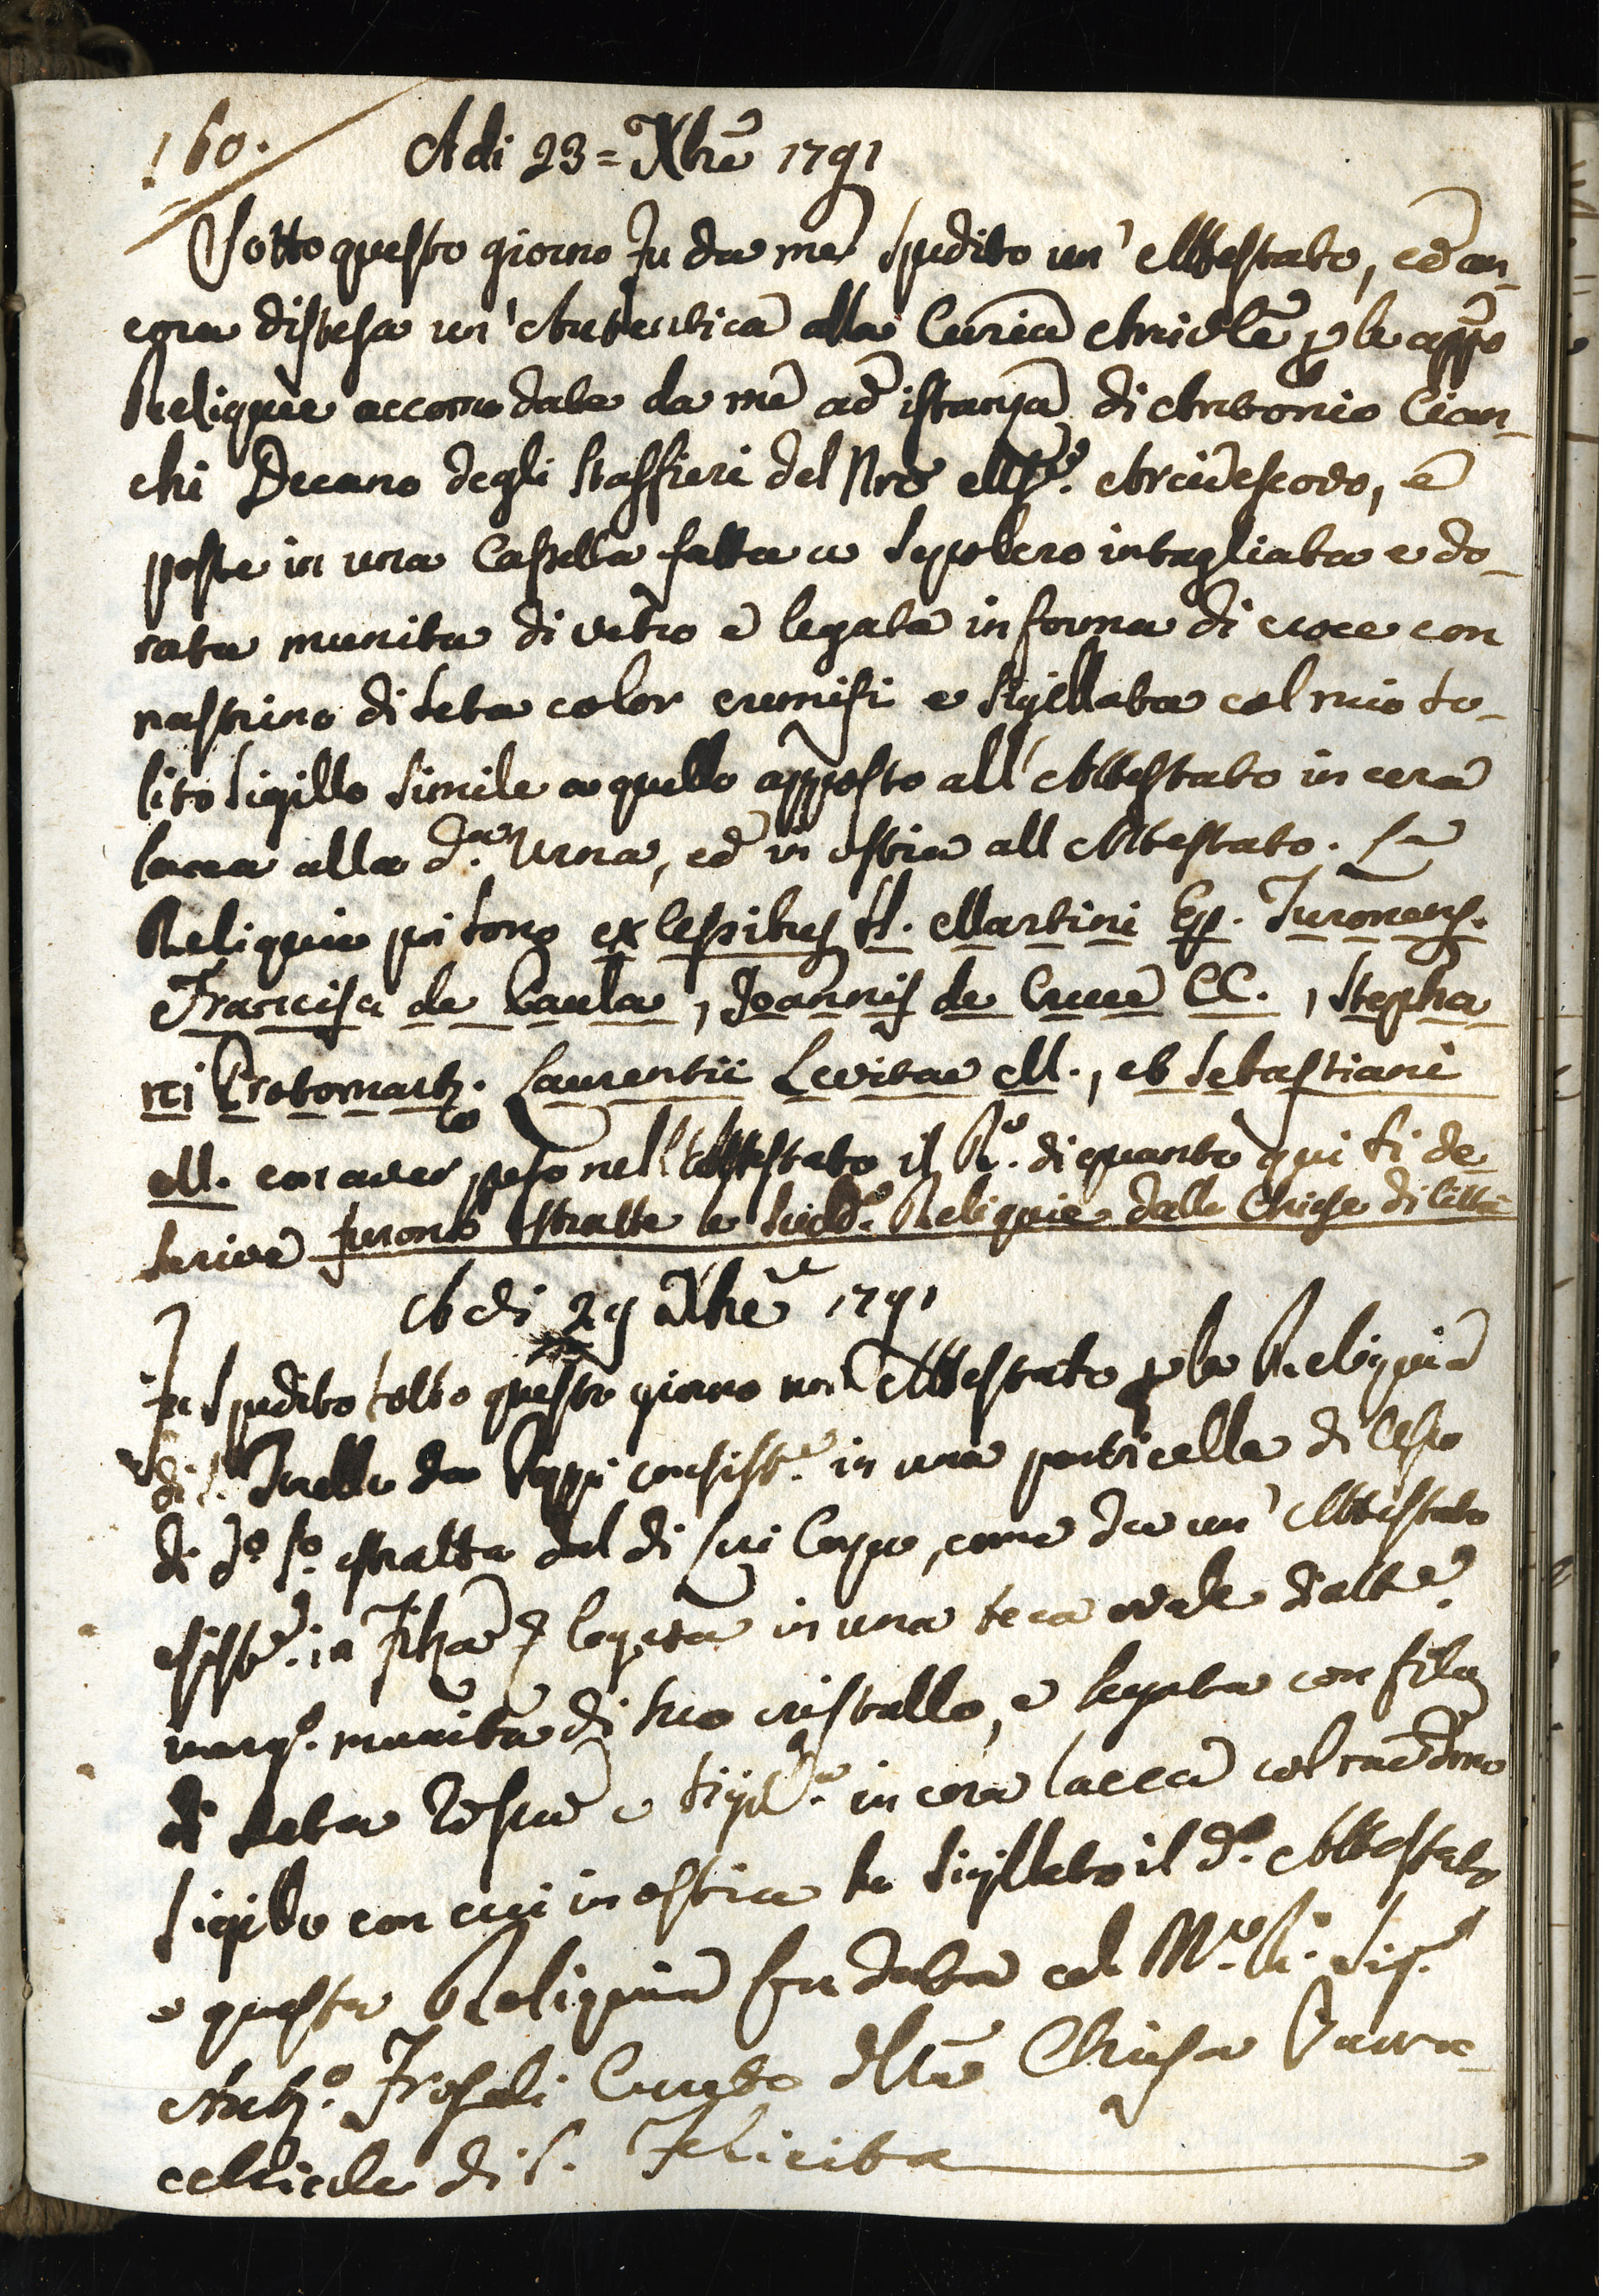 160.
A di 23 = Xbre 1791
Sotto questo giorno fu da me spedito un' Attestato, ed an-
cora distesa un' Autentica alla Curia Arcivle p le appo
Reliquie accomodate da me ad istanza di Antonio Cian-
chi Decano degli Staffieri del Nro Arcivescovo, e
poste in una Cassetta fatta a Sepolcro intagliata e do-
rata munita di vetro e legata in forma di croce con
nastrino di seta color cremisi e sigillata col mio so-
lito sigillo simile a quello apposto all' Attestato in cera
lacca alla da. Urna, ed in ostia all Attestato. Le
Reliquie poi sono ex cessitus SS. Martini Ep. Turonens.
Francisci de Paula, Joannis de Cruce CC., Stepha-
ni Protomart. Laurentii Levitae M., et Sebastiani
M. con aver posto nell' Attestato il No. di quanto qui si de
scrive furono estratte le sudd. Reliquie dalle Chiese di Città
A di 29 Xbre 1791
Fu spedito sotto questo giorno un Attestato p la Reliquia
di S. Torello da Poppi consiste. in una particella di Cesso
di do. So. estratta dal di lui Corpo, come da un' Attestato
esiste. in Filza e legata in una teca ovale d'atte.
marg. munita di suo cristallo, e legata con filo
di seta rossa e sigla. in cera lacca col med.mo
sigillo con cui in ostia ho sigillato il do. Attestato
e questa Reliquia fu data al Mo. Ro. Sig.
Frosali Curato della Chiesa Parro-
cchiale di S. Felicita